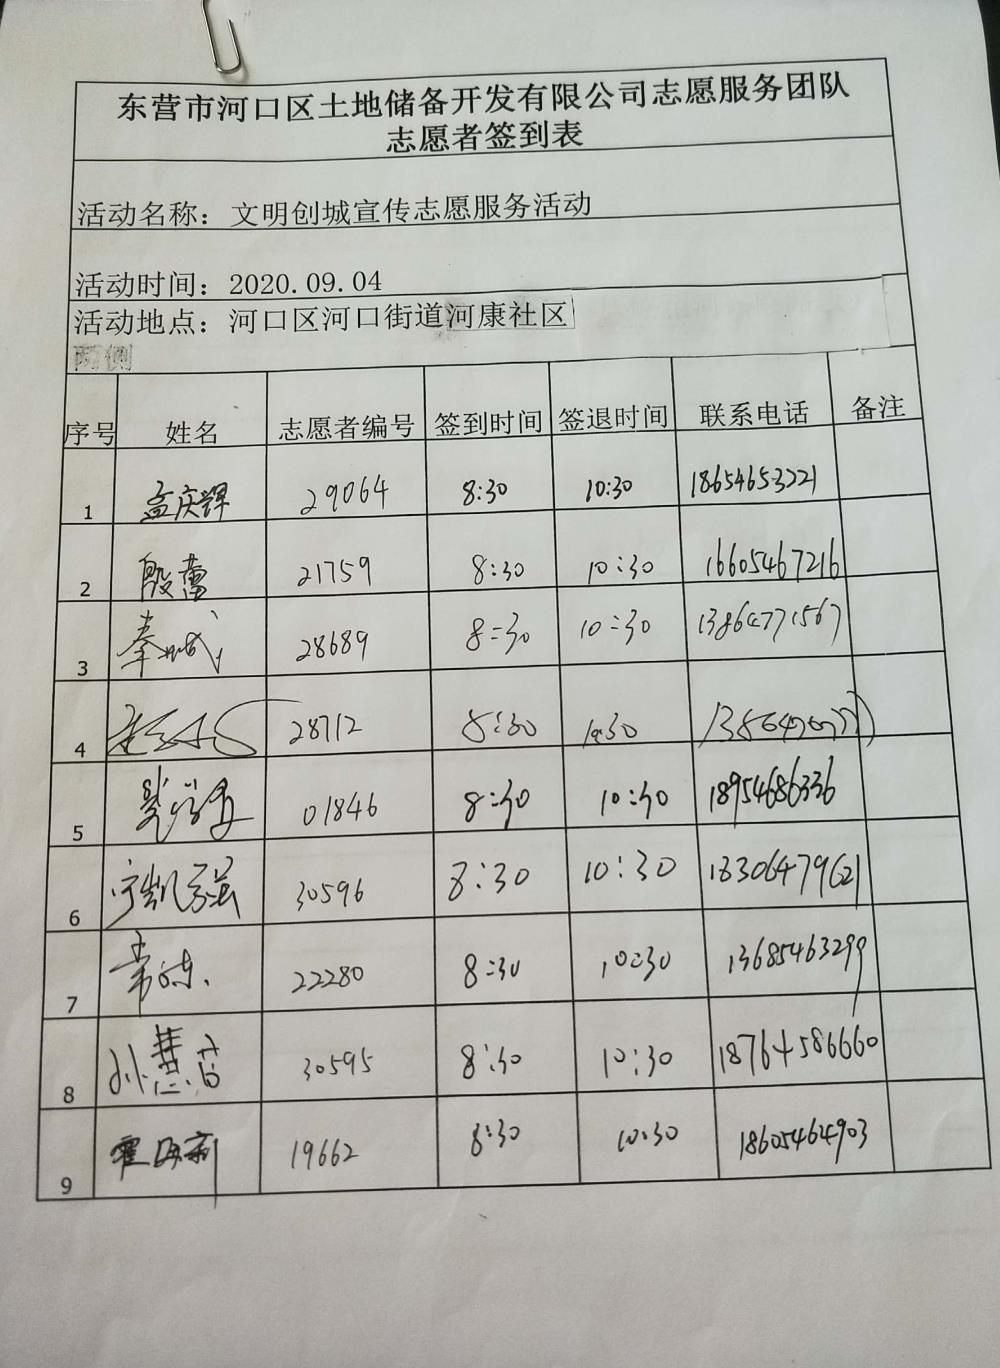 东营市河口区土地储备开发有限公司志愿服务团队
志愿者签到表
活动名称：文明创城宣传志愿服务活动
活动时间：2020.09.04
活动地点：河口区河口街道河康社区
两侧
序号 姓名 志愿者编号 签到时间 签退时间 联系电话 备注
1 孟庆辉 29064 8:30 10:30 18654653221
2 殷蕾 21759 8:30 10:30 16605467216
3 28689 8:30 10:30 13864771567
4 28712 8:30 10:30
5 01846 8:30 10:30 18954686336
6 30596 8:30 10:30 18306479621
7 22280 8:30 10:30 13685463299
8 孙慧茵 30595 8:30 10:30 18764586660
9 霍海利 19662 8:30 10:30 18605464903